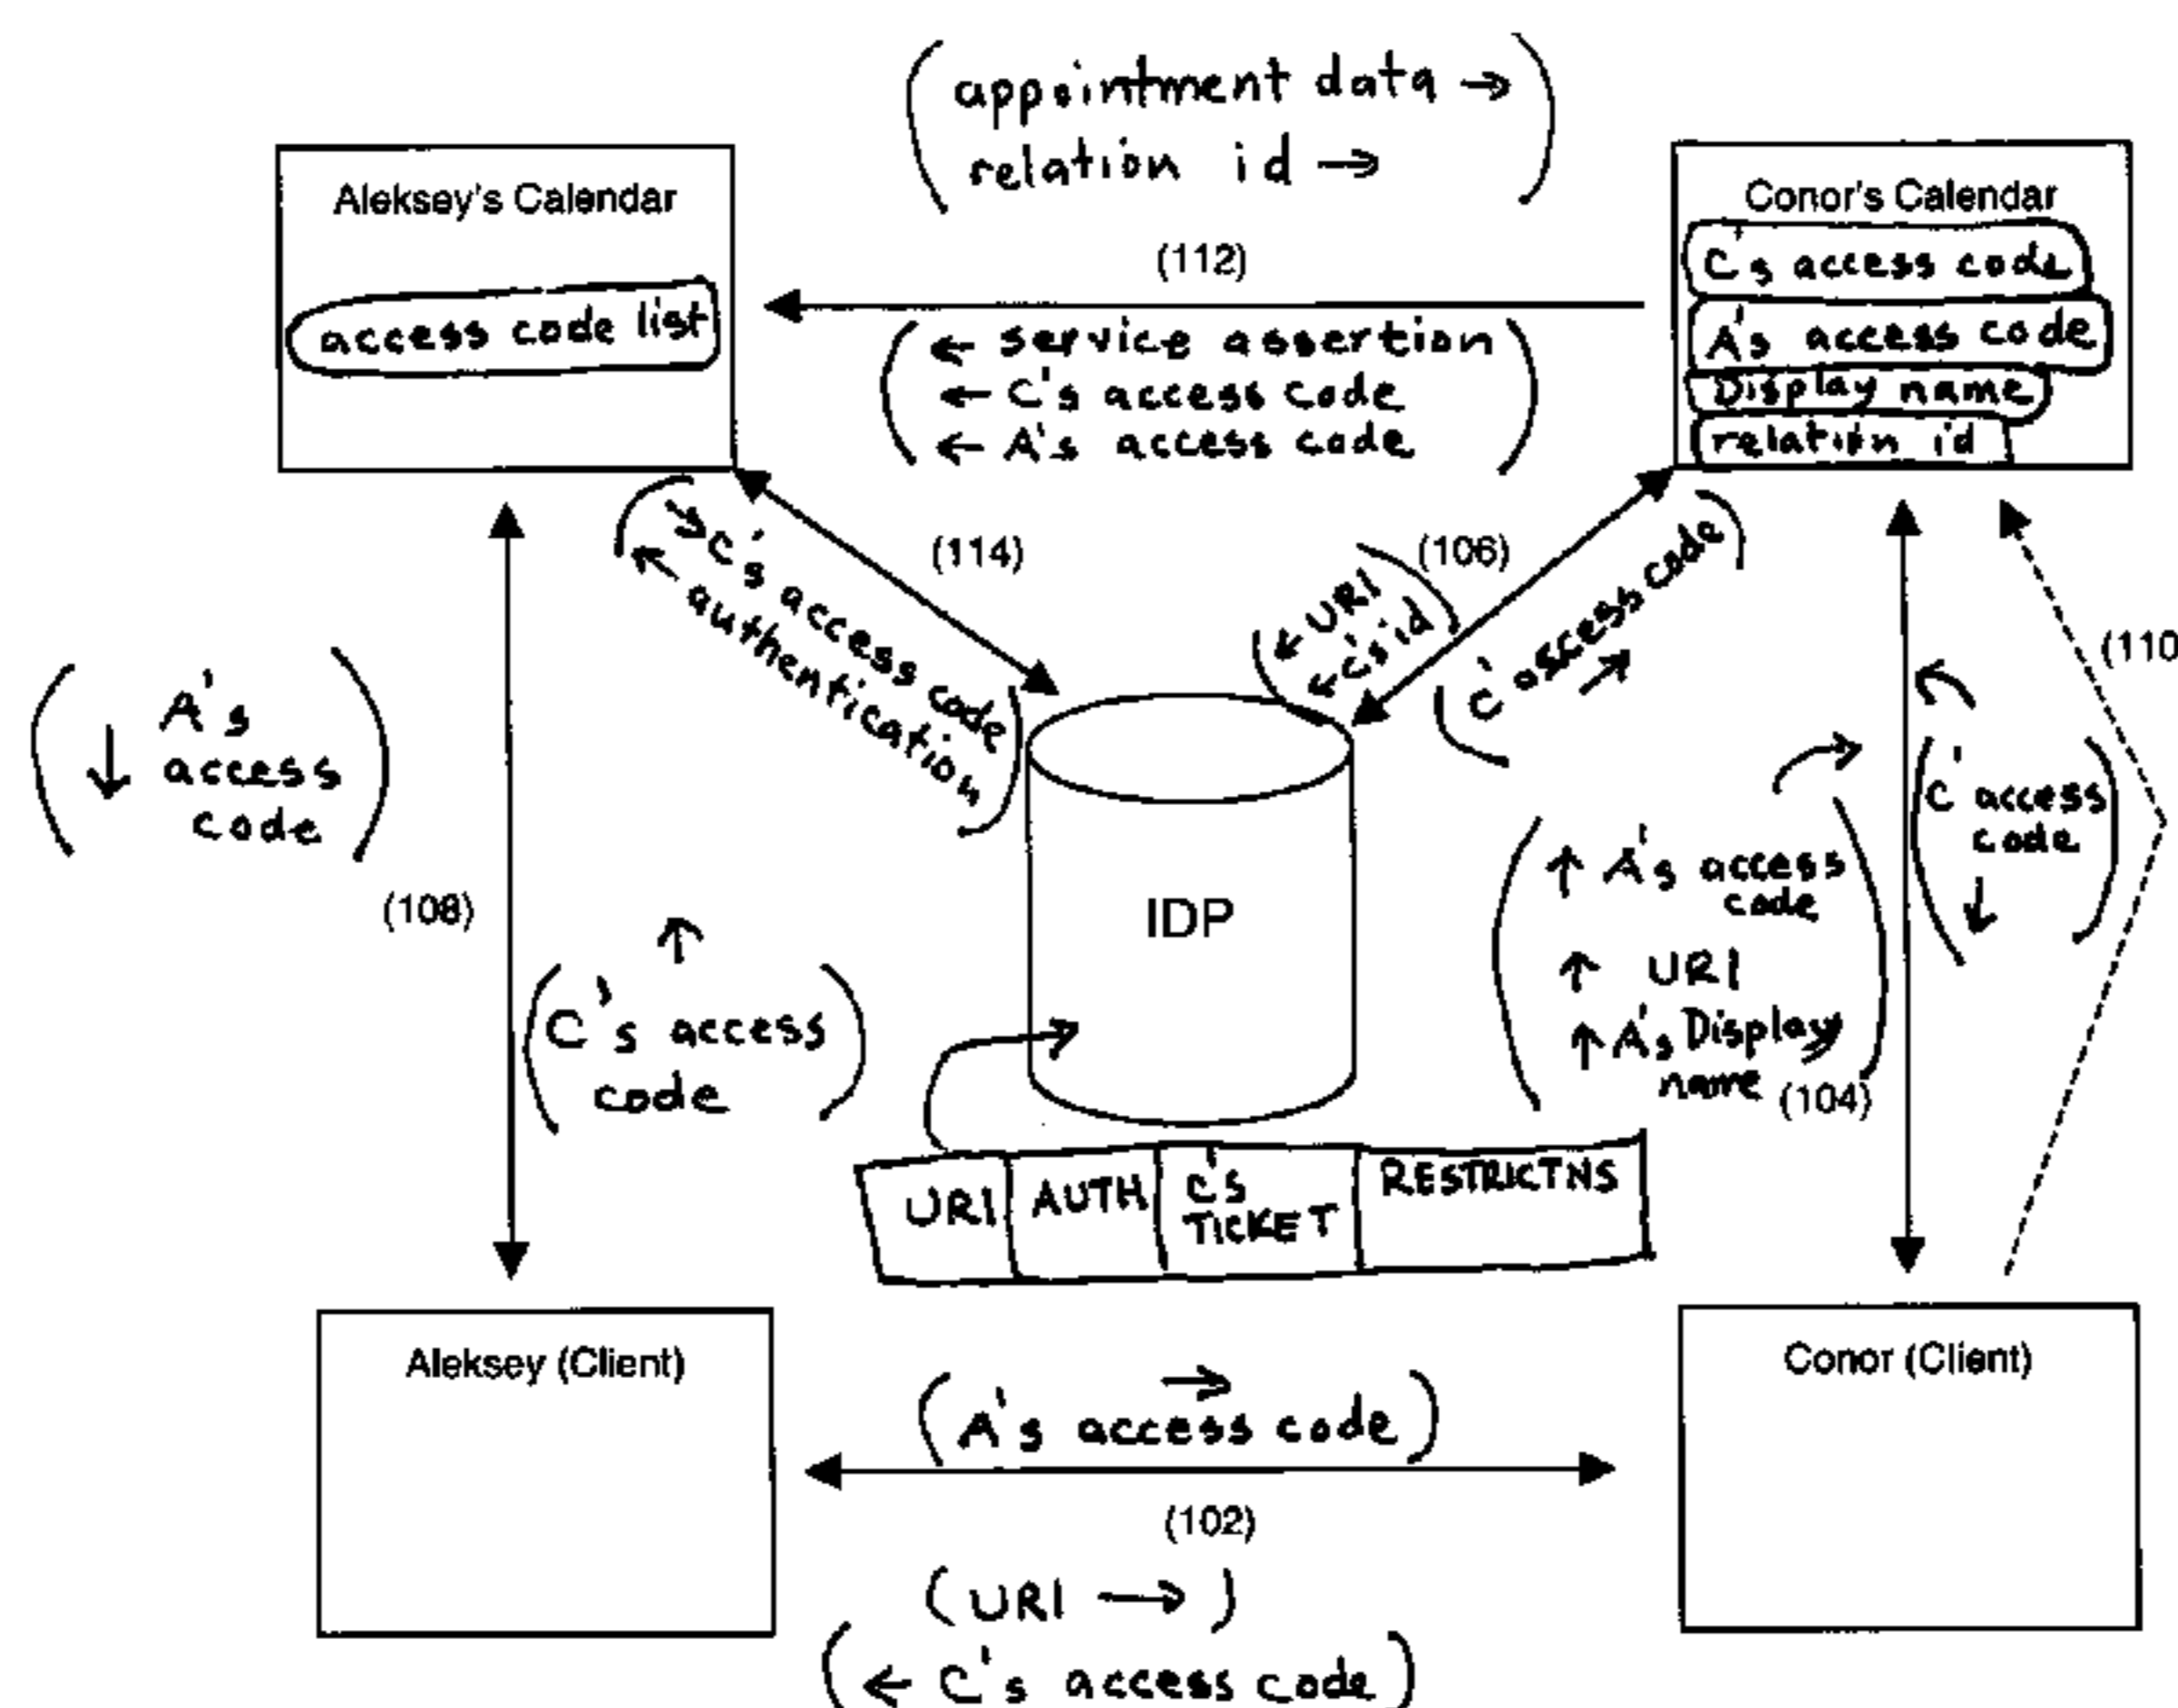 appointment data →
relation id →
Aleksey's Calendar
access code list
(112)
← service assertion
← C's access code
← A's access code
Conor's Calendar
C's access code
A's access code
Display name
relation id
(114)
↘ C's access code
↖ authentication
(106)
← URI
← C's id
C' access code →
(110
A's
↓ access
code
(108)
↑
C's access
code
IDP
↑ A's access
code
↑ URI
↑ A's Display
name
(104)
C' access
code
↓
URI
AUTH
C's
TICKET
RESTRICTNS
Aleksey (Client)
→
(A's access code)
(102)
(URI →)
(← C's access code)
Conor (Client)